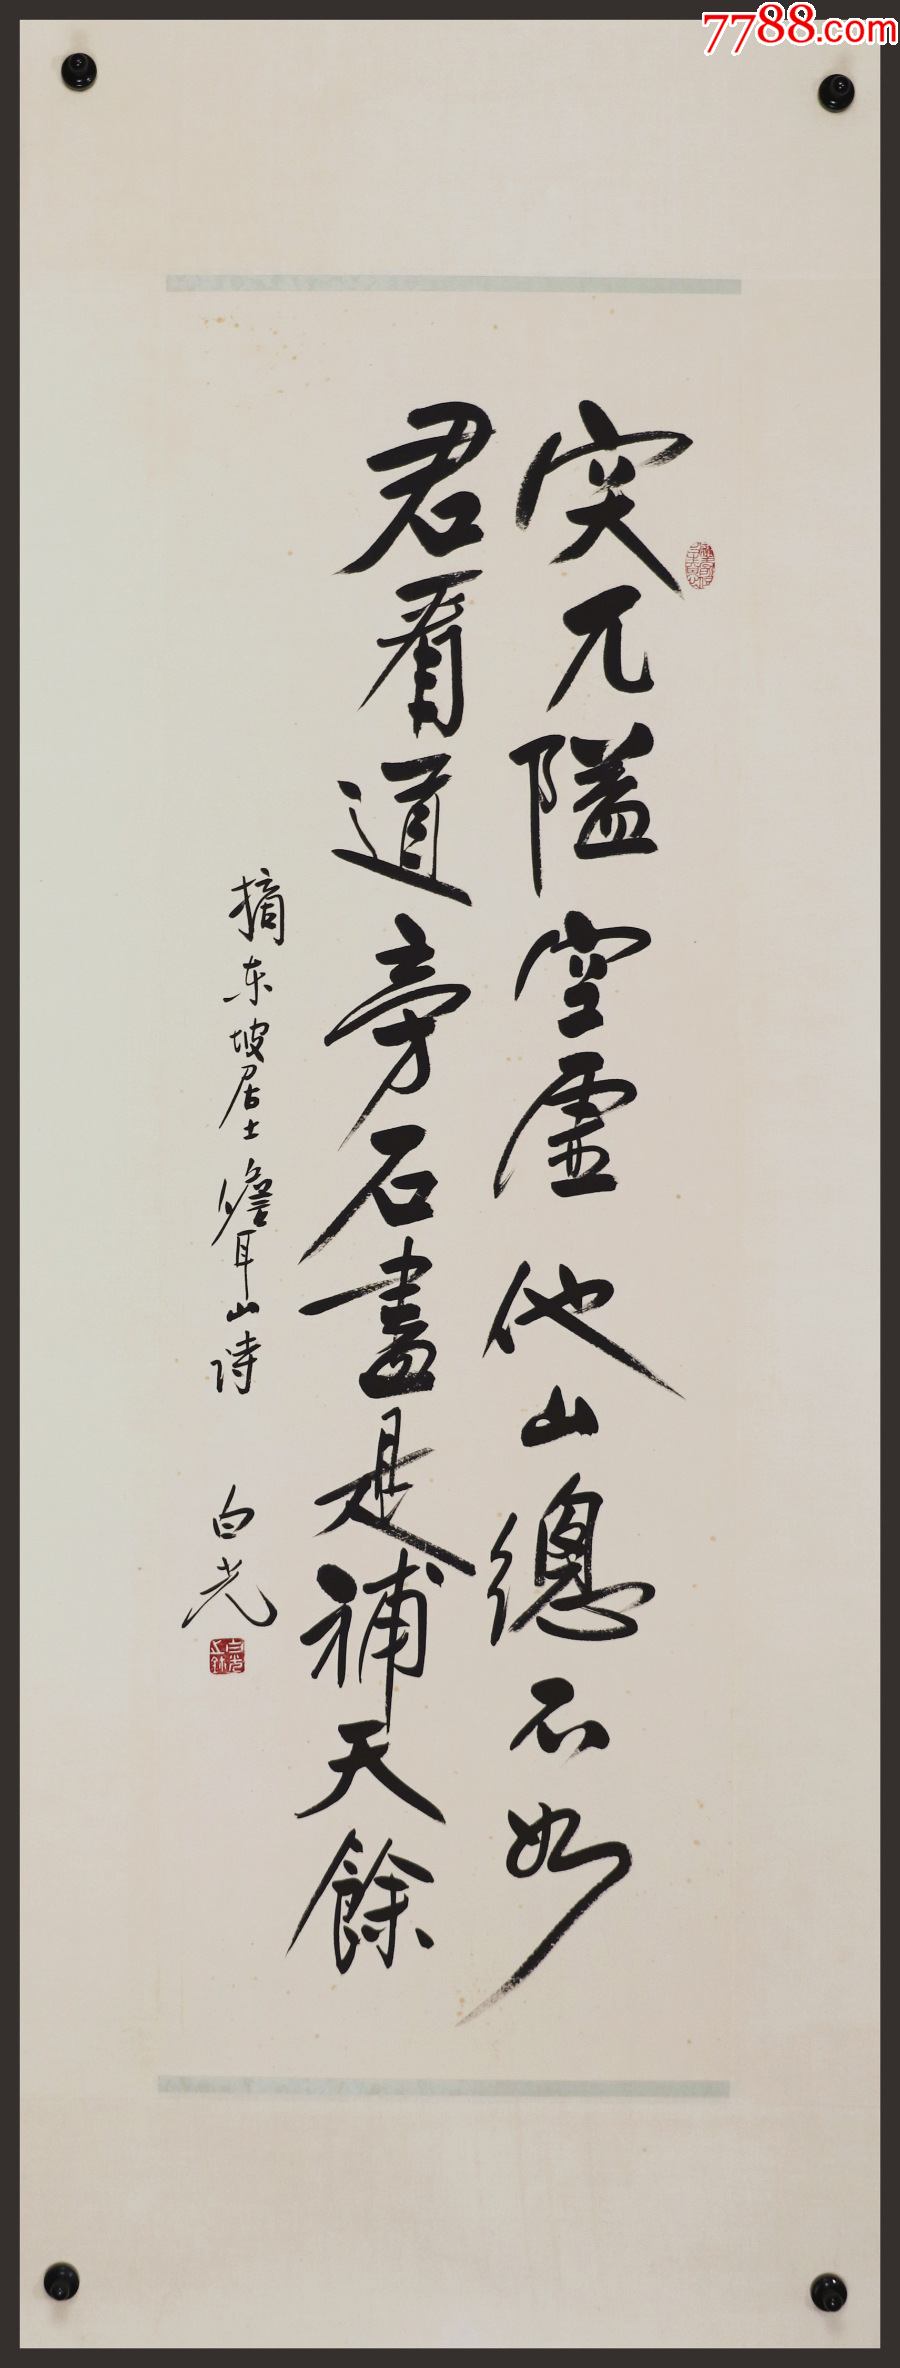 7788.com
突兀隘空虚他山總不如
君看道旁石盡是補天餘
摘东坡居士儋耳山诗
白光